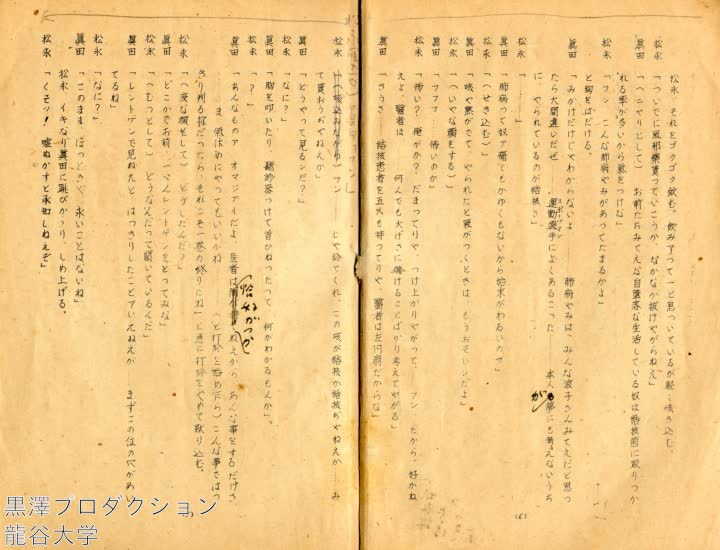 松永、それをゴクゴク飲む。飲み了って一と息ついているが軽く咳き込む。
松永「ついでに風邪薬貰っていこうか、なかなか抜けやがらねえ」
眞田「(ニヤリとして)お前たちみてえな自堕落な生活している奴は結核菌に取りつか
れる率が多いから気をつけな」
松永「フン、こんな肺病やみがあってたまるかよ」
と胸をはだける。
眞田「みかけだけじゃわからないよ……肺病やみは みんな浪子さんみてえだと思っ
たら大間違いだぜ……運動選手によくあるこった……本人が夢にも考えないうち
に やられているのが結核さ」
松永「…………」
眞田「肺病って奴ァ痛くもかゆくもないから始末がわるいのサ」
松永「(せき込む)」
眞田「咳や熱がでて、やられたと気がつくときは、もうおそいんだよ」
松永「(いやな顔をする)」
眞田「フフフ 怖いのか」
松永「怖い? 俺がか? だまってりや つけ上りやがって……フン だから、好かね
えよ、醫者は……何んでも大げさに嚇けることばかり考えてやがる」
眞田「そうさ……結核患者を五人も持ってりや 醫者は左円扇だからな」
(6)
松永「(咳込みながら)フン……じゃ診てくれ、この咳が結核か結核ぢやねえか……み
て貰おうぢやねえか」
眞田「どうやって見るンだ?」
松永「なに?」
眞田「胸を叩いたり、聽診器つけて首ひねったって 何がわかるもんか」
松永「?」
眞田「あんなものァ オマジナイだよ 医者は恰好がつかねえから あんな事をするだけさ
……ま、気休めにやってもいいがね……(と打診を始め乍ら)こんな事ではっ
きり判る様だったら、それこそ一巻の終りだね」と急に打診をやめて黙り込む。
松永「(変な顔をして)どうしたんだ?」
眞田「どこかでお前、一ぺんレントゲンをとってみな」
松永「(むっとして)どうなんだって聞いているんだ」
眞田「レントゲンで見ねえと はっきりしたことァいえねえが……まずこの位の穴があい
てるね」
松永「なに?」
眞田「このまま、ほっとくと、永いことはないね」
松永、イキなり眞田に跳びかゝり、しめ上げる。
松永「くそッ! 嘘ぬかすと承知しねえぞ」
黒澤プロダクション
龍谷大学